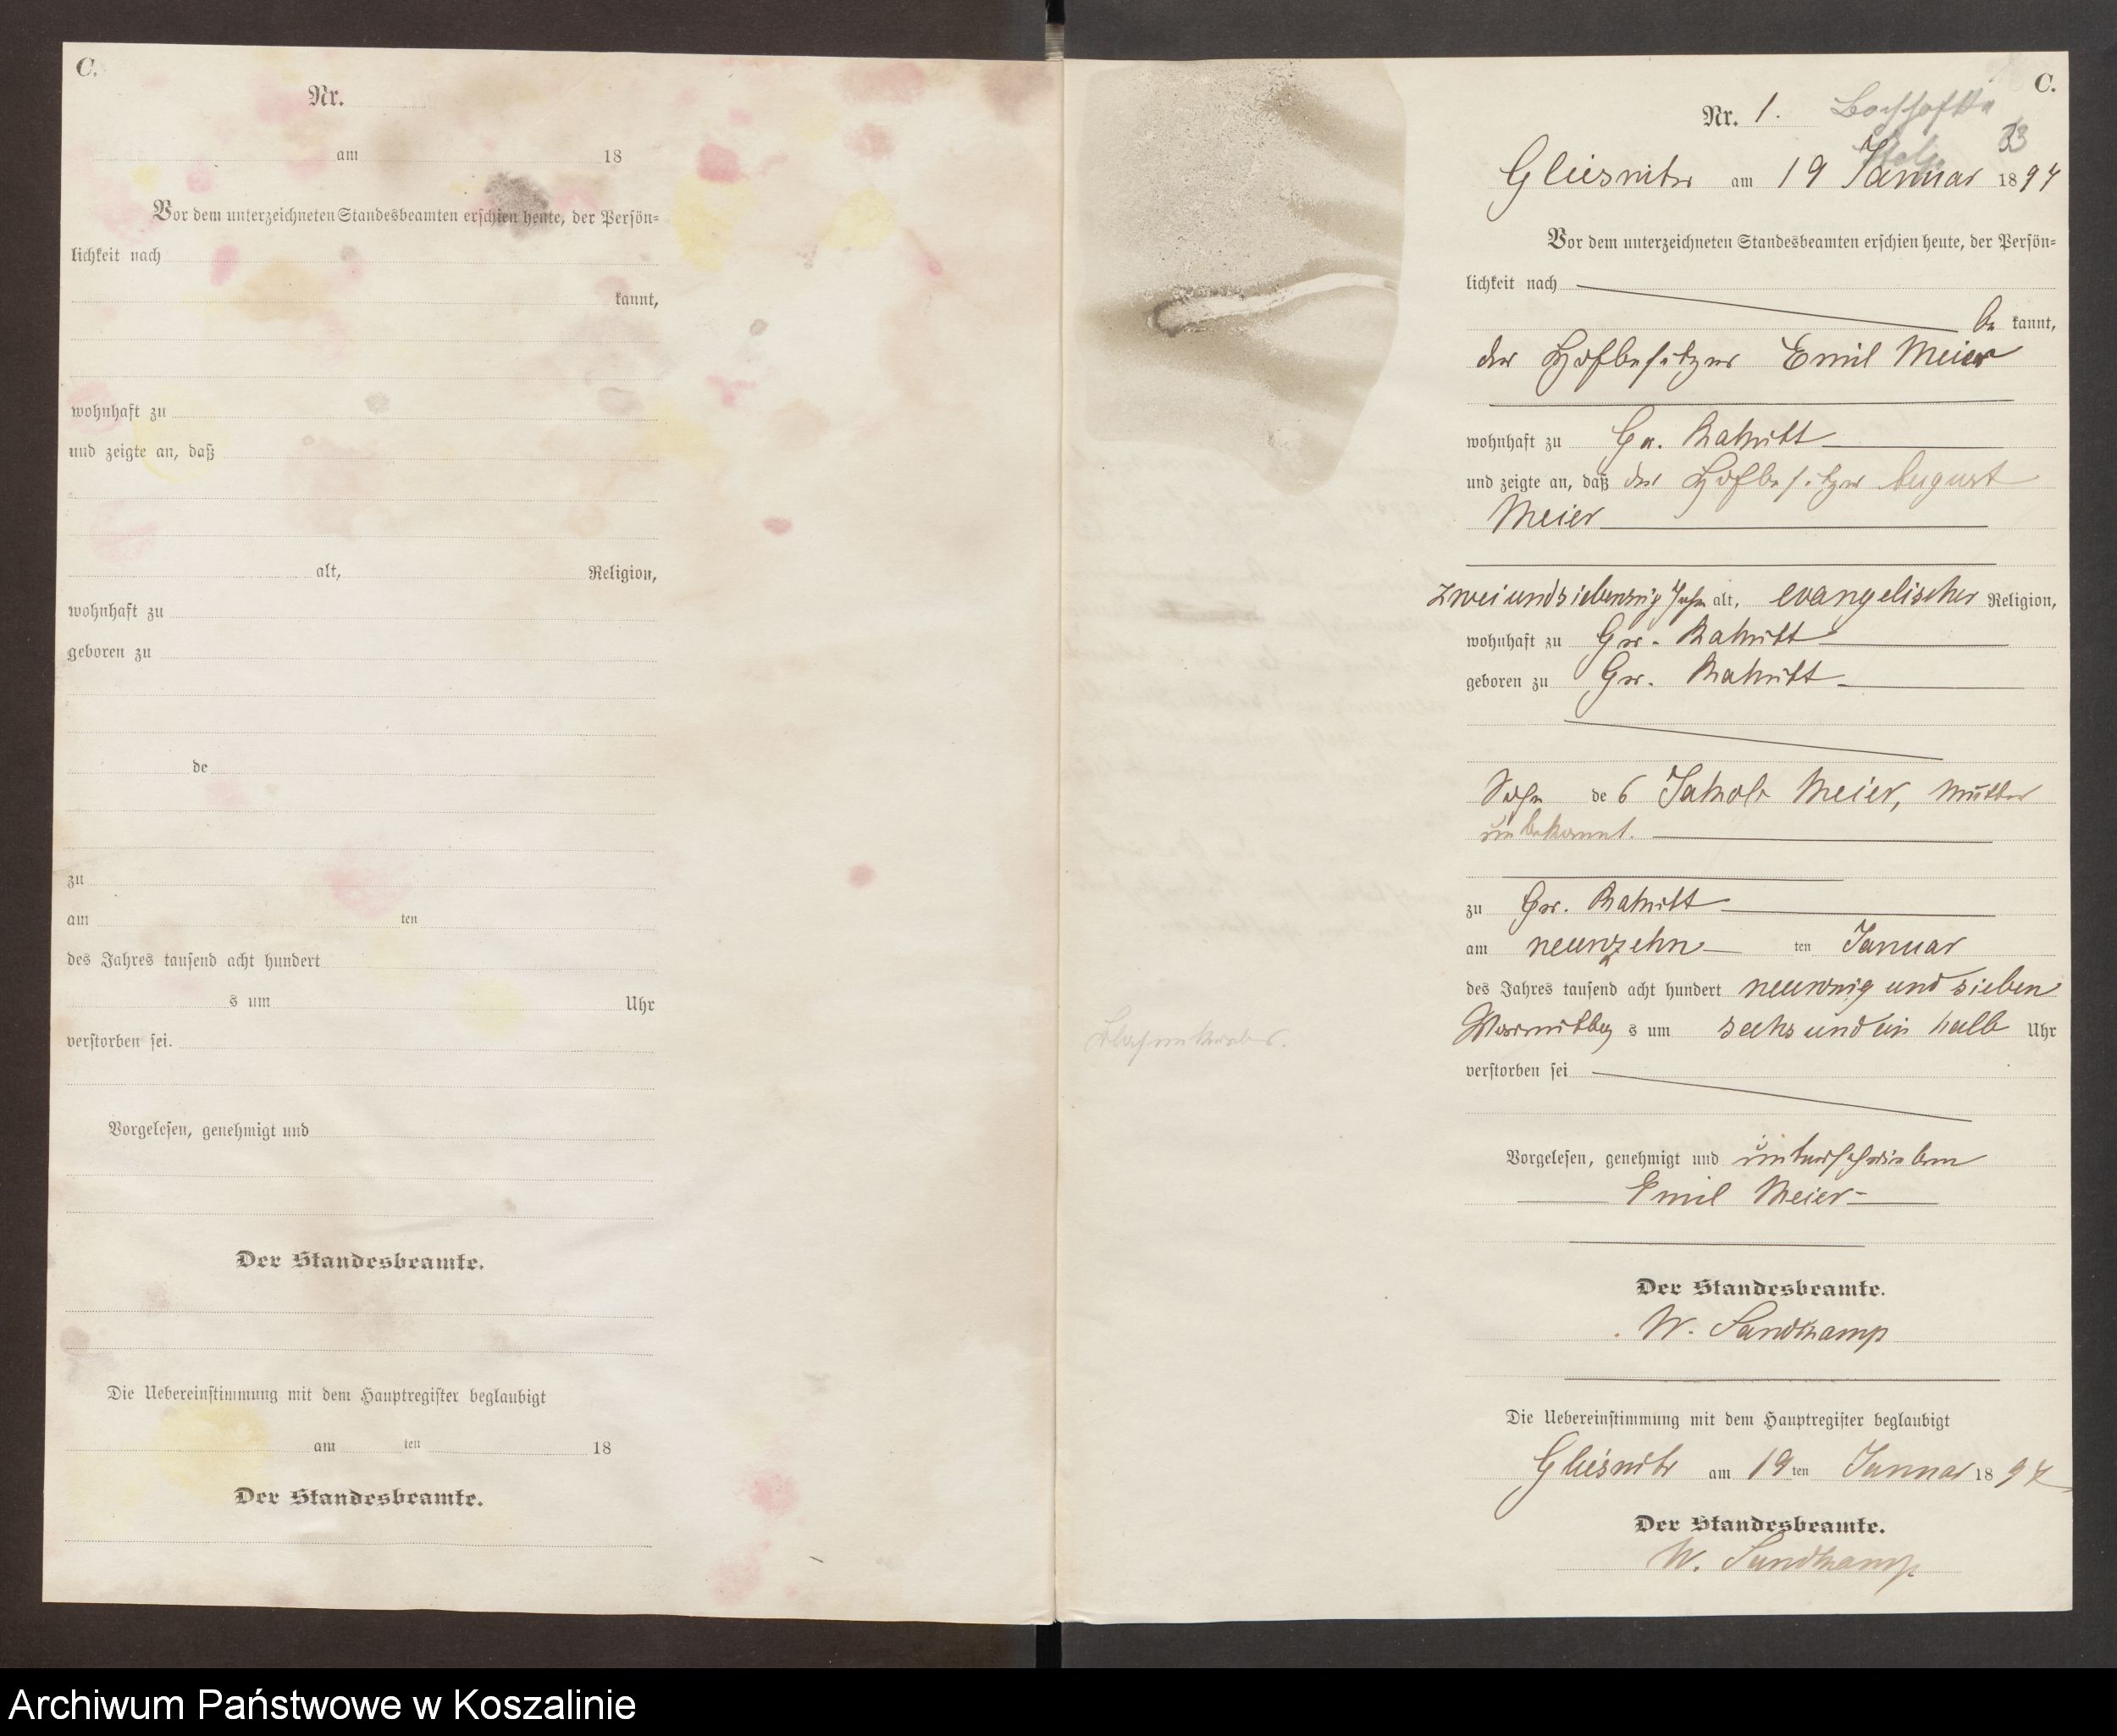 C.
Nr.
am 18
Vor dem unterzeichneten Standesbeamten erschien heute, der Persön=
lichkeit nach
kannt,
wohnhaft zu
und zeigte an, daß
alt, Religion,
wohnhaft zu
geboren zu
de
zu
am ten
des Jahres tausend acht hundert
s um Uhr
verstorben sei.
Vorgelesen, genehmigt und
Der Standesbeamte.
Die Uebereinstimmung mit dem Hauptregister beglaubigt
am ten 18
Der Standesbeamte.
C.
Nr. 1.
Gliesnitz am 19 Januar 1897
Vor dem unterzeichneten Standesbeamten erschien heute, der Persön=
lichkeit nach
be kannt,
der Hofbesitzer Emil Meier
wohnhaft zu Gr.
und zeigte an, daß der Hofbesitzer August
Meier
zweiundsiebenzig Jahr alt, evangelischer Religion,
wohnhaft zu Gr.
geboren zu Gr.
Sohn des Jakob Meier, Mutter
unbekannt.
zu Gr.
am neunzehn ten Januar
des Jahres tausend acht hundert neunzig und sieben
Vormittag s um sechs und ein halb Uhr
verstorben sei
Vorgelesen, genehmigt und unterschrieben
Emil Meier
Der Standesbeamte.
W. Sandkamp
Die Uebereinstimmung mit dem Hauptregister beglaubigt
Gliesnitz am 19ten Januar 1897
Der Standesbeamte.
W. Sandkamp
Archiwum Państwowe w Koszalinie